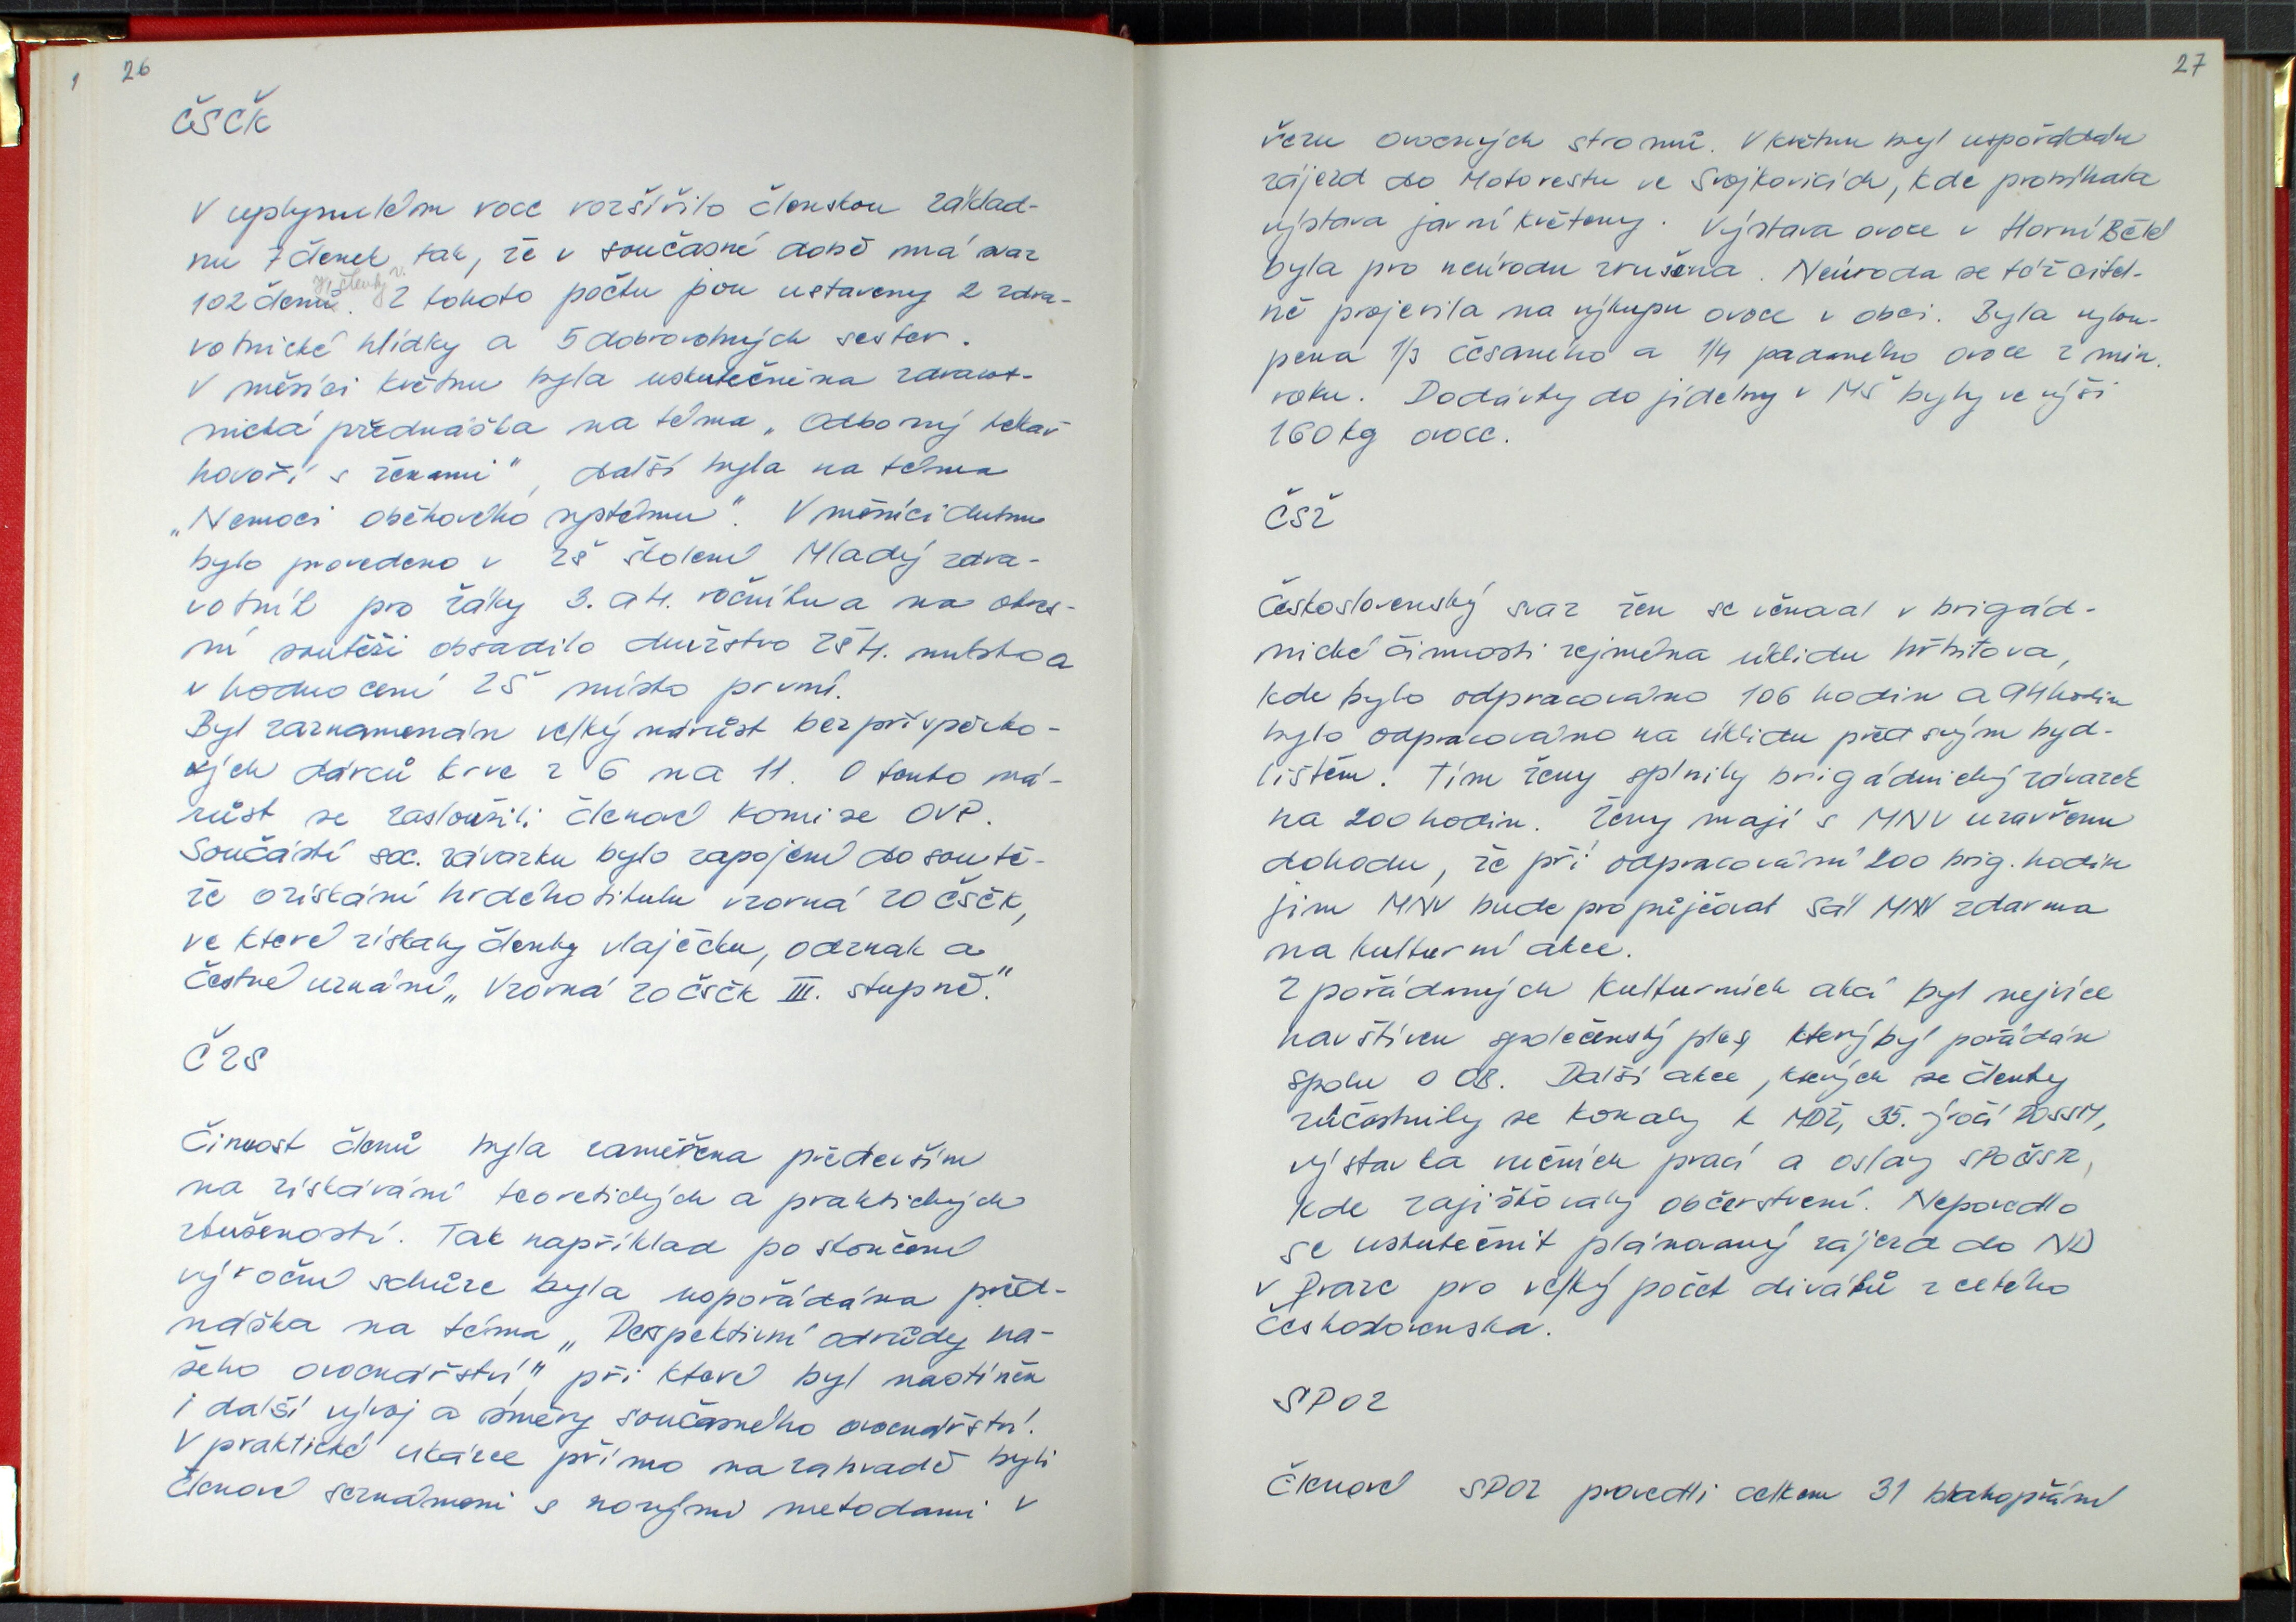 1 26
ČSČK
V uplynulém roce rozšířilo členskou základ-
nu 7 členek tak, že v současné době má svaz
102 členů. Z tohoto počtu jsou ustaveny 2 zdra-
votnické hlídky a 5 dobrovolných sester.
V měsíci květnu byla uskutečněna zdravot-
nická přednáška na téma „Odborný lékař
hovoří s ženami", další byla na téma
„Nemoci oběhového systému". V měsíci dubnu
bylo provedeno v ZŠ školení Mladý zdra-
votník pro žáky 3. a 4. ročníku a na okres-
ní soutěži obsadilo družstvo ZŠ 4. místo a
v hodnocení ZŠ místo první.
Byl zaznamenán velký nárůst bezpříspěvko-
vých dárců krve z 6 na 11. O tento ná-
růst se zasloužili členové komise OVP.
Součástí soc. závazku bylo zapojení do soutě-
že o získání hrdého titulu vzorná ZO ČSČK,
ve které získaly členky vlaječku, odznak a
čestné uznání „Vzorná ZO ČSČK III. stupně."
ČZS
Činnost členů byla zaměřena především
na získávání teoretických a praktických
zkušeností. Tak například po skončení
výroční schůze byla uspořádána před-
náška na téma „Perspektivní odrůdy na-
šeho ovocnářství" při které byl nastíněn
i další vývoj a směry současného ovocnářství.
V praktické ukázce přímo na zahradě byli
členové seznámeni s novými metodami v
27
řezu ovocných stromů. V květnu byl uspořádán
zájezd do Motorestu ve Svojkovicích, kde probíhala
výstava jarní květeny. Výstava ovoce v Horní Bělé
byla pro neúrodu zrušena. Neúroda se též citel-
ně projevila na výkupu ovoce v obci. Byla vykou-
pena 1/3 česaného a 1/4 padaného ovoce z min.
roku. Dodávky do jídelny v MŠ byly ve výši
160 kg ovoce.
ČSŽ
Československý svaz žen se věnoval v brigád-
nické činnosti zejména úklidu hřbitova,
kde bylo odpracováno 106 hodin a 94 hodin
bylo odpracováno na úklidu před svým byd-
lištěm. Tím ženy splnily brigádnický závazek
na 200 hodin. Ženy mají s MNV uzavřenu
dohodu, že při odpracování 200 brig. hodin
jim MNV bude propůjčovat sál MNV zdarma
na kulturní akce.
Z pořádaných kulturních akcí byl nejvíce
navštíven společenský ples, který byl pořádán
spolu s OB. Další akce, kterých se členky
zúčastnily se konaly k MDŽ, 35. výročí
výstavka ručních prací a oslavy SPOČSR,
kde zajišťovaly občerstvení. Nepovedlo
se uskutečnit plánovaný zájezd do ND
v Praze pro velký počet diváků z celého
Československa.
SPOZ
Členové SPOZ provedli celkem 31 blahopřání